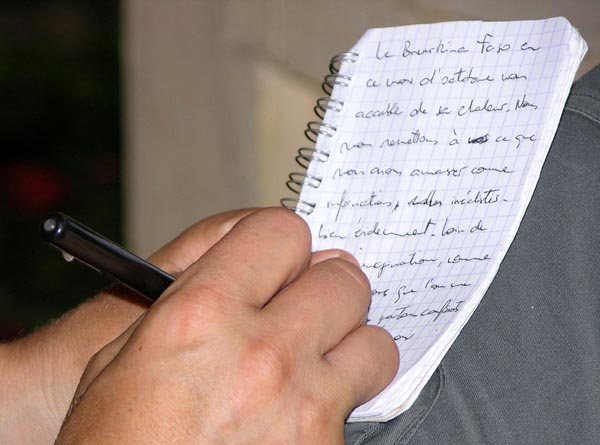 Le Bourkina Faso en
ce mois d'octobre nous
accable de sa chaleur. Nous
nous remettons à ce que
nous avons amassé comme
informations, inédites
bien évidemment. Loin de
imagination, comme
que l'on